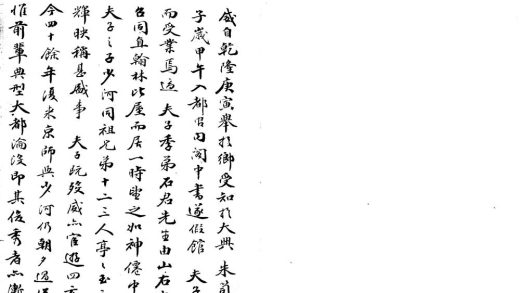 盛自乾隆庚寅舉於鄉受知於大興 朱
子歲甲午入都官內閣中書遂假館 夫子
而受業焉適 夫子季弟石君先生由山右
召同直翰林比屋而居一時望之如神僊中
夫子之子少河同祖兄弟十二三人亭亭玉
輝映稱甚盛事 夫子旣歿盛亦宦遊四
今四十餘年復来京師與少河仍朝夕過
惟前輩典型大都淪沒卽其俊秀者亦漸